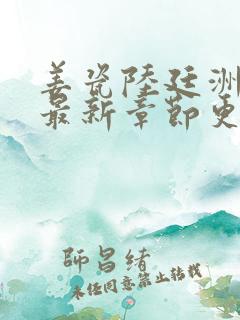 姜瓷陆廷洲
最新章节更
师昌绪
未经同意禁止转载